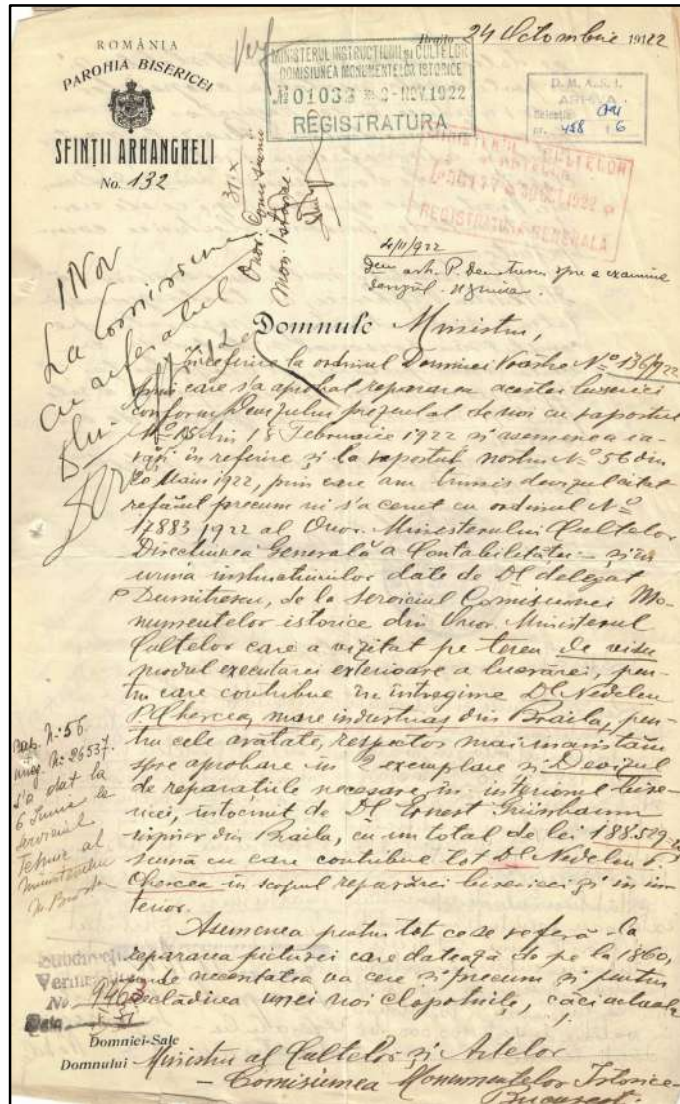 ROMÂNIA
PAROHIA BISERICEI
SFINȚII ARHANGHELI
No. 132
24 Octombrie 1922
MINISTERUL INSTRUCTIUNII ȘI CULTELOR
COMISIUNEA MONUMENTELOR ISTORICE
№ 01033 2-NOV.1922
REGISTRATURA
D.M.A.S.I.
nr. 458
REGISTRATURA GENERALA
Onor. Comisiunei
Mon. Istorice
1 Nov
La Comisiunea
cu referatul
4/II/922
arh. P. Demetrescu spre a examina
Domnule Ministru,
La ordinul Domniei Voastre No 136/922
prin care s'a aprobat repararea acestei biserici
conform Devizului prezentat de noi cu raportul
No 15 din 18 Februarie 1922 și asemenea ia-
răși în referire și la raportul nostru No 56 din
20 1922, prin care am trimis devizul
refăcut precum ni s'a cerut cu ordinul No
17883 1922 al Onor. Ministerului Cultelor
Direcțiunea Generală a Contabilităței - și în
urma instrucțiunilor date de Dl delegat
P Dumitrescu, de la serviciul Comisiunei Mo-
numentelor istorice din Onor. Ministerul
Cultelor care a vizitat pe teren de visu
modul executarei exterioare a lucrărei, pen-
tru care contribue în intregime Dl Nedelcu
P. Chercea, mare industriaș din Braila, pen-
tru cele arătate, respectos mai inaintăm
spre aprobare în 2 exemplare și Devizul
de reparatiile necesare în interiorul biseri-
cei, intocmit de Dl Ernest Grünbaum
inginer din Braila, cu un total de lei 188.529
sumă cu care contribue tot Dl Nedelcu P.
Chercea în scopul reparărei bisericei și în in-
terior.
Rap. No 56
inreg. No 26537.
s'a dat la
6 Iunie la
serviciul
Tehnic al
Ministerului
Asemenea pentru tot ce se referă la
repararea picturei care datează de pe la 1860,
unde necesitatea va cere și precum și pentru
recladirea unei noi clopotnițe, căci actuala
No 946
Data
Domniei-Sale
Domnului Ministru al Cultelor și Artelor
- Comisiunea Monumentelor Istorice -
București.